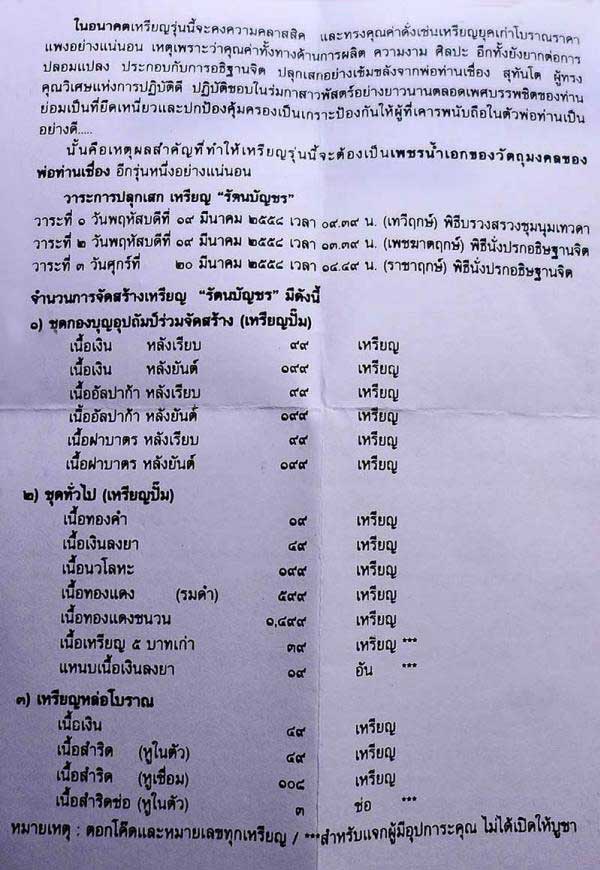 ในอนาคตเหรียญรุ่นนี้จะคงความคลาสสิค และทรงคุณค่าดั่งเช่นเหรียญยุคเก่าโบราณราคา
แพงอย่างแน่นอน เหตุเพราะว่าคุณค่าทั้งทางด้านการผลิต ความงาม ศิลปะ อีกทั้งยังยากต่อการ
ปลอมแปลง ประกอบกับการอธิฐานจิต ปลุกเสกอย่างเข้มขลังจากพ่อท่านเชื่อง สุทันโต ผู้ทรง
คุณวิเศษแห่งการปฏิบัติดี ปฏิบัติชอบในร่มกาสาวพัสตร์อย่างยาวนานตลอดเพศบรรพชิตของท่าน
ย่อมเป็นที่ยึดเหนี่ยวและปกป้องคุ้มครองเป็นเกราะป้องกันให้ผู้ที่เคารพนับถือในตัวพ่อท่านเป็น
อย่างดี.....
นั้นคือเหตุผลสำคัญที่ทำให้เหรียญรุ่นนี้จะต้องเป็นเพชรน้ำเอกของวัตถุมงคลของ
พ่อท่านเชื่อง อีกรุ่นหนึ่งอย่างแน่นอน
วาระการปลุกเสก เหรียญ "รัตนบัญชร"
วาระที่ ๑ วันพฤหัสบดีที่ ๑๙ มีนาคม ๒๕๕๘ เวลา ๐๙.๓๙ น. (เทวีฤกษ์) พิธีบรวงสรวงชุมนุมเทวดา
วาระที่ ๒ วันพฤหัสบดีที่ ๑๙ มีนาคม ๒๕๕๘ เวลา ๑๓.๓๙ น. (เพชฆาตฤกษ์) พิธีนั่งปรกอธิษฐานจิต
วาระที่ ๓ วันศุกร์ที่ ๒๐ มีนาคม ๒๕๕๘ เวลา ๑๔.๔๙ น. (ราชาฤกษ์) พิธีนั่งปรกอธิษฐานจิต
จำนวนการจัดสร้างเหรียญ "รัตนบัญชร" มีดังนี้
๑) ชุดกองบุญอุปถัมป์ร่วมจัดสร้าง (เหรียญปั๊ม)
เนื้อเงิน หลังเรียบ ๙๙ เหรียญ
เนื้อเงิน หลังยันต์ ๑๙๙ เหรียญ
เนื้ออัลปาก้า หลังเรียบ ๙๙ เหรียญ
เนื้ออัลปาก้า หลังยันต์ ๑๙๙ เหรียญ
เนื้อฝาบาตร หลังเรียบ ๙๙ เหรียญ
เนื้อฝาบาตร หลังยันต์ ๑๙๙ เหรียญ
๒) ชุดทั่วไป (เหรียญปั๊ม)
เนื้อทองคำ ๑๙ เหรียญ
เนื้อเงินลงยา ๔๙ เหรียญ
เนื้อนวโลหะ ๑๙๙ เหรียญ
เนื้อทองแดง (รมดำ) ๕๙๙ เหรียญ
เนื้อทองแดงชนวน ๑,๔๙๙ เหรียญ
เนื้อเหรียญ ๕ บาทเก่า ๓๙ เหรียญ ***
แหนบเนื้อเงินลงยา ๑๙ อัน ***
๓) เหรียญหล่อโบราณ
เนื้อเงิน ๔๙ เหรียญ
เนื้อสำริด (หูในตัว) ๔๙ เหรียญ
เนื้อสำริด (หูเชื่อม) ๑๐๘ เหรียญ
เนื้อสำริดช่อ (หูในตัว) ๓ ช่อ ***
หมายเหตุ : ตอกโค๊ดและหมายเลขทุกเหรียญ / ***สำหรับแจกผู้มีอุปการะคุณ ไม่ได้เปิดให้บูชา